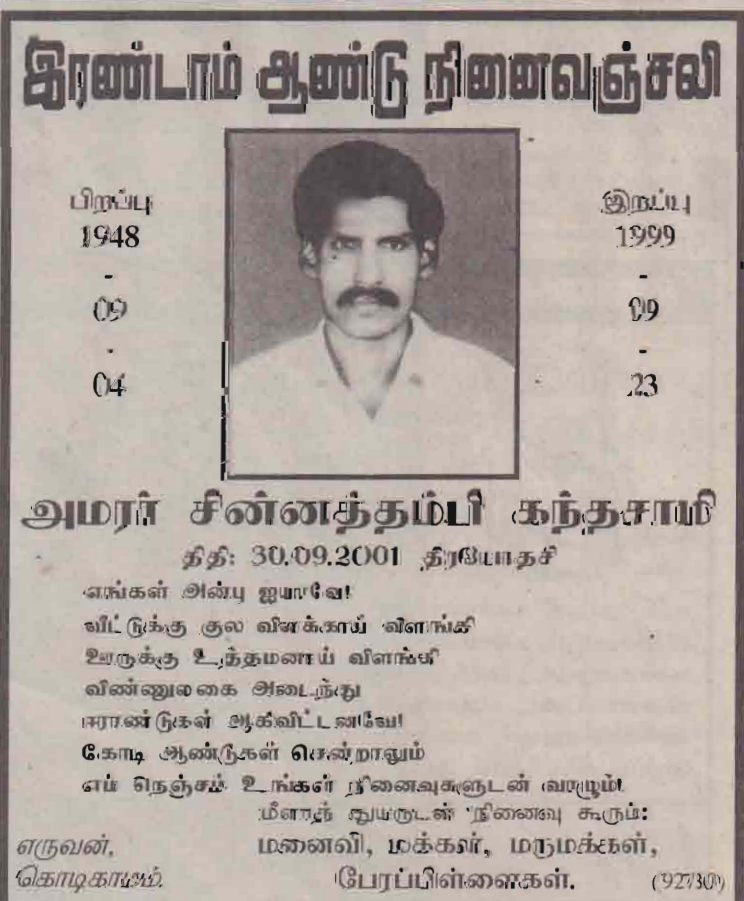 இரண்டாம் ஆண்டு நினைவஞ்சலி
பிறப்பு
1948
-
09
-
04
இறப்பு
1999
-
09
-
23
அமரர் சின்னத்தம்பி கந்தசாமி
திதி: 30.09.2001 திரயோதசி
எங்கள் அன்பு ஐயாவே!
வீட்டுக்கு குல விளக்காய் விளங்கி
ஊருக்கு உத்தமனாய் விளங்கி
விண்ணுலகை அடைந்து
ஈராண்டுகள் ஆகிவிட்டனவே!
கோடி ஆண்டுகள் சென்றாலும்
எம் நெஞ்சம் உங்கள் நினைவுகளுடன் வாழும்!
மீளாத் துயருடன் நினைவு கூரும்:
மனைவி, மக்கள், மருமக்கள்,
பேரப்பிள்ளைகள்.
எருவன்,
கொடிகாமம்.
(92730)